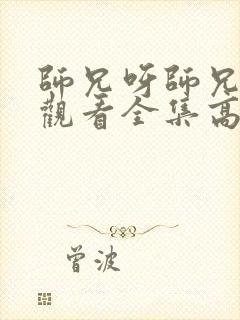 師兄呀師兄
觀看全集高
曾波